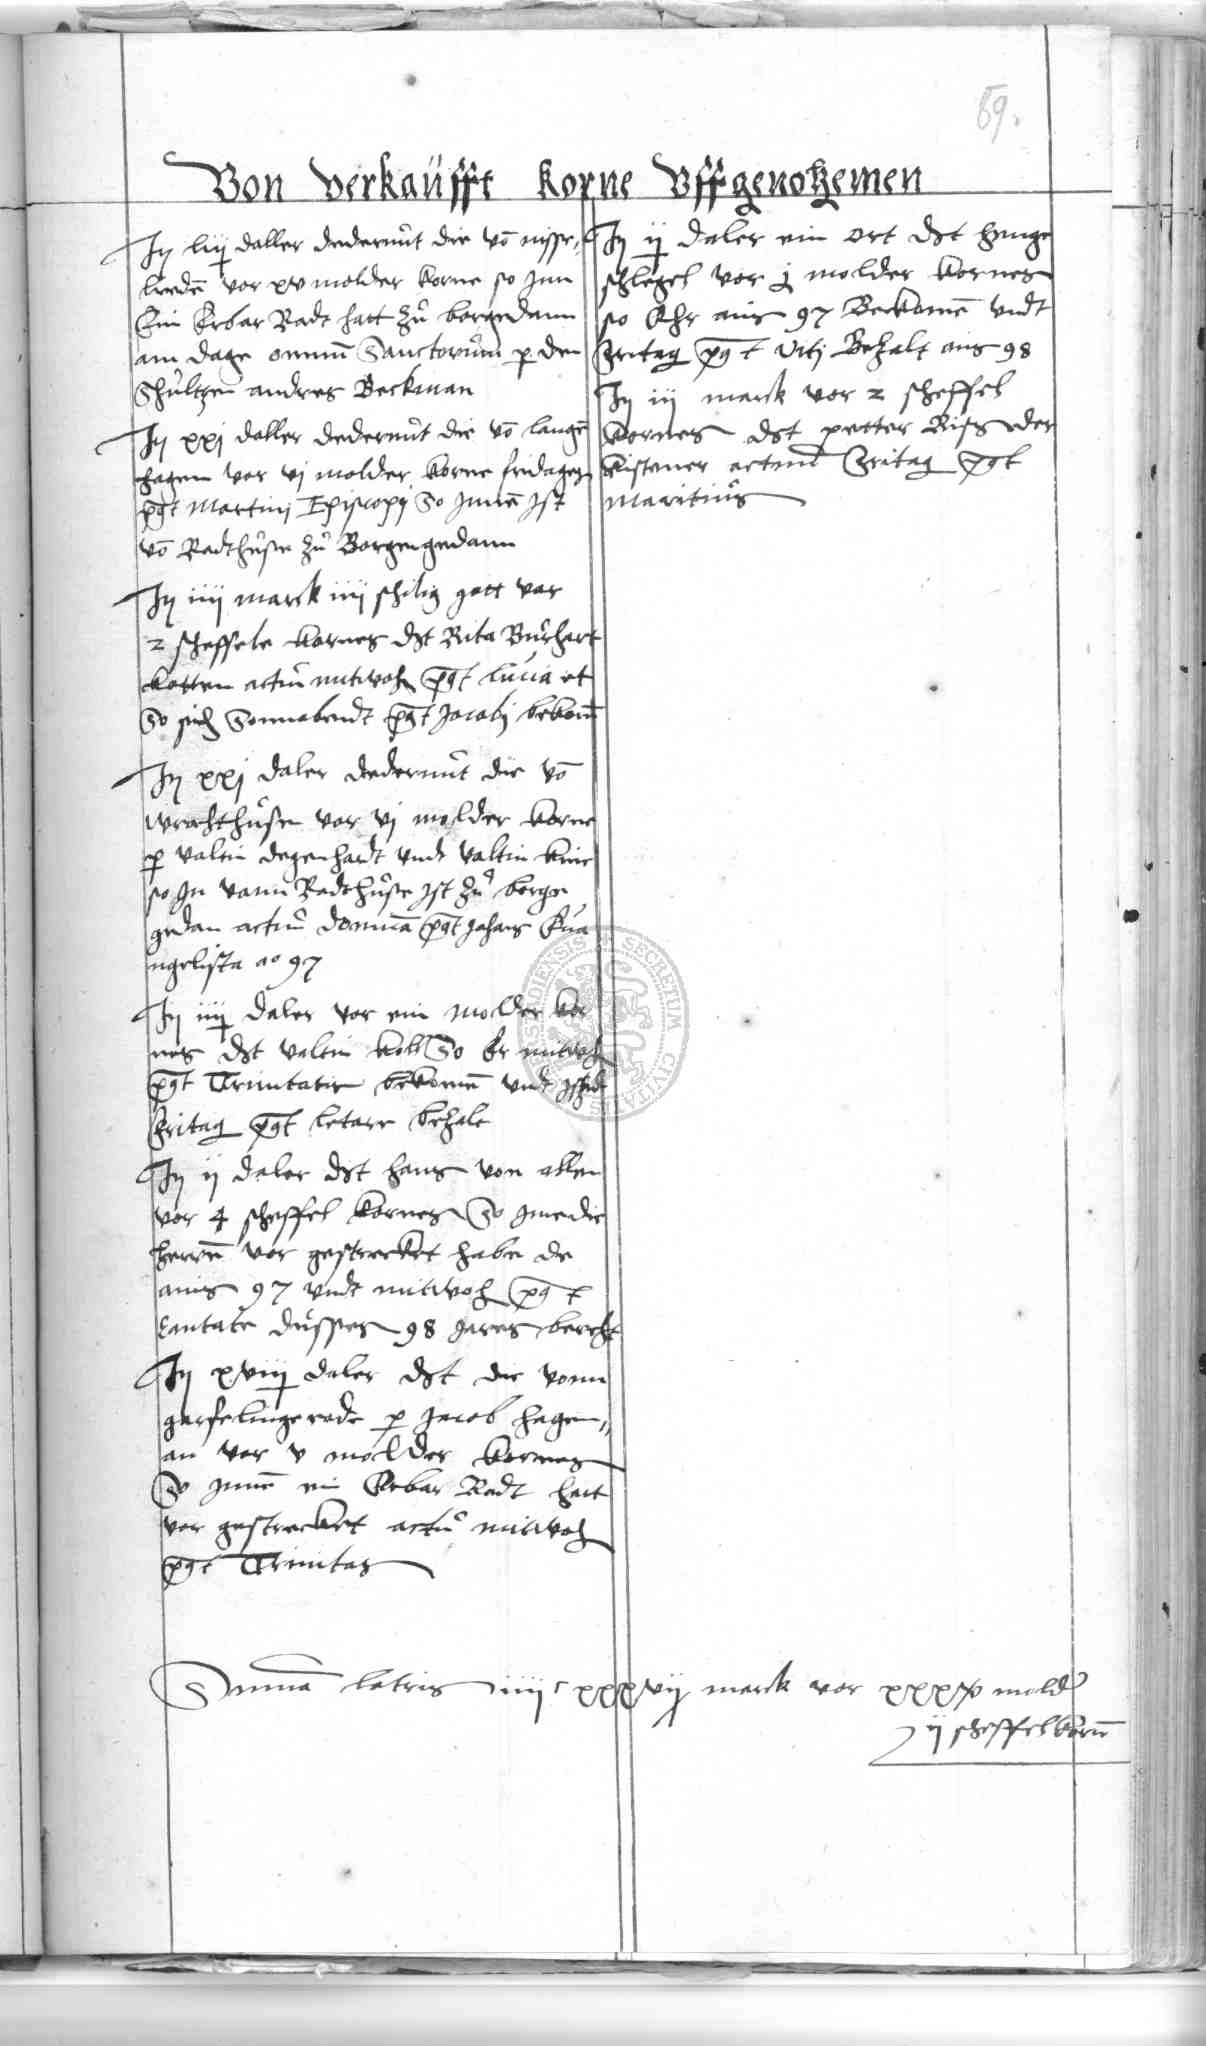 69.
Von verkaufft korne Vffgenohemen
Jŋ liij daller dedermit die vō nisse„
leedē vor xv molder korne so Jnn
Ein Erbar Radt hatt zu borgedann
am dage omniū Sanctorum p den
Schultzen andres Beckman
Jŋ xxj daller dedermit die vō langē
hagen vor vj molder korne fridagen
post Martinj Episcopj so Jnnē Jst
vō Radthuse zu Borgen gedann
Jŋ iiij marck iiij schilig gott vor
2 scheffele kornes dst Rita Burchart
kotten actū mitwoch post lucia et
so sich Sonnabendt post Jacobj bekomē
Jŋ xxj daler dedermit die vō
wrechthusen vor vj molder korne
p valtin degenhardt vndt valtin kine
so Jn vann Radthuse Jst zu borge
gedan actū dominā post Johans Eua
ngelista ao 97
Jŋ iiij daler vor ein molder kor
nes dst valtin koll so Er mitwoch
post Trinitatis bekomē vndt
fritag post letare behalt
Jŋ ij daler dst hans von allen
vor 4 scheffel kornes so Jme die
herrē vor gestreckt habe de
anis 97 vndt mitwoch post
Cantate dusses 98 Jares berecht
Jŋ xviij daler dst die vonn
gerselingerode p Jacob hagem„
an vor v molder kornes
so Jnnē ein Erbar Radt hatt
vor gestreckt actū mitwoch
post Trinitas
Jŋ ij daler ein ort dst hange
schlegel vor j molder kornes
so Ehr anis 97 Bekomē vndt
fritag post Viti Bezalt anis 98
Jŋ iij marck vor 2 scheffel
kornes dst petter Riss der
kistener actum fritag post
Maritius
Summa latris iiijc xxxvij marck vor xxxv mold
ij scheffel kornē
SECRETUM CIVITATIS